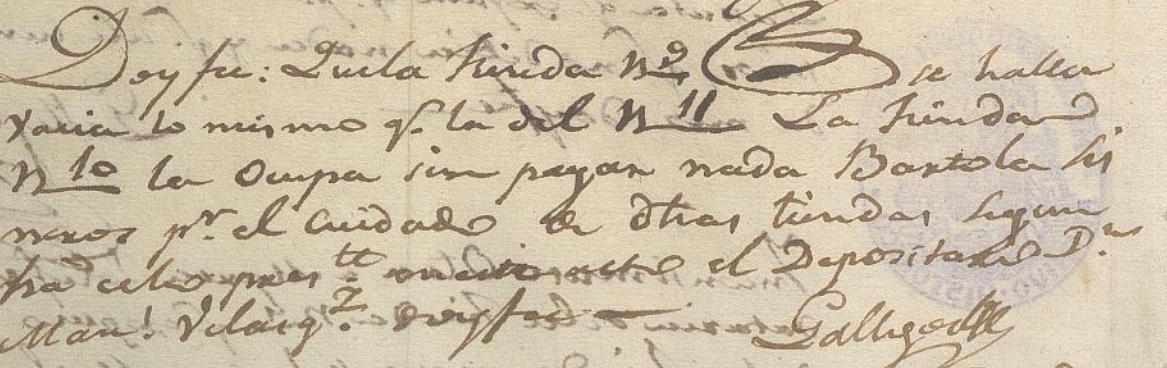 Doy fee: Que la tienda N.º 9 se halla
vacia lo mismo q.e la del N 11 La tienda
N 10 la ocupa sin pagar nada Bartola Lis
neros p.r el cuidado de dhas tiendas segun
ha pres.te en este acto el Depositario D.n
Man.l Velazq.z doy fee
Gallegos